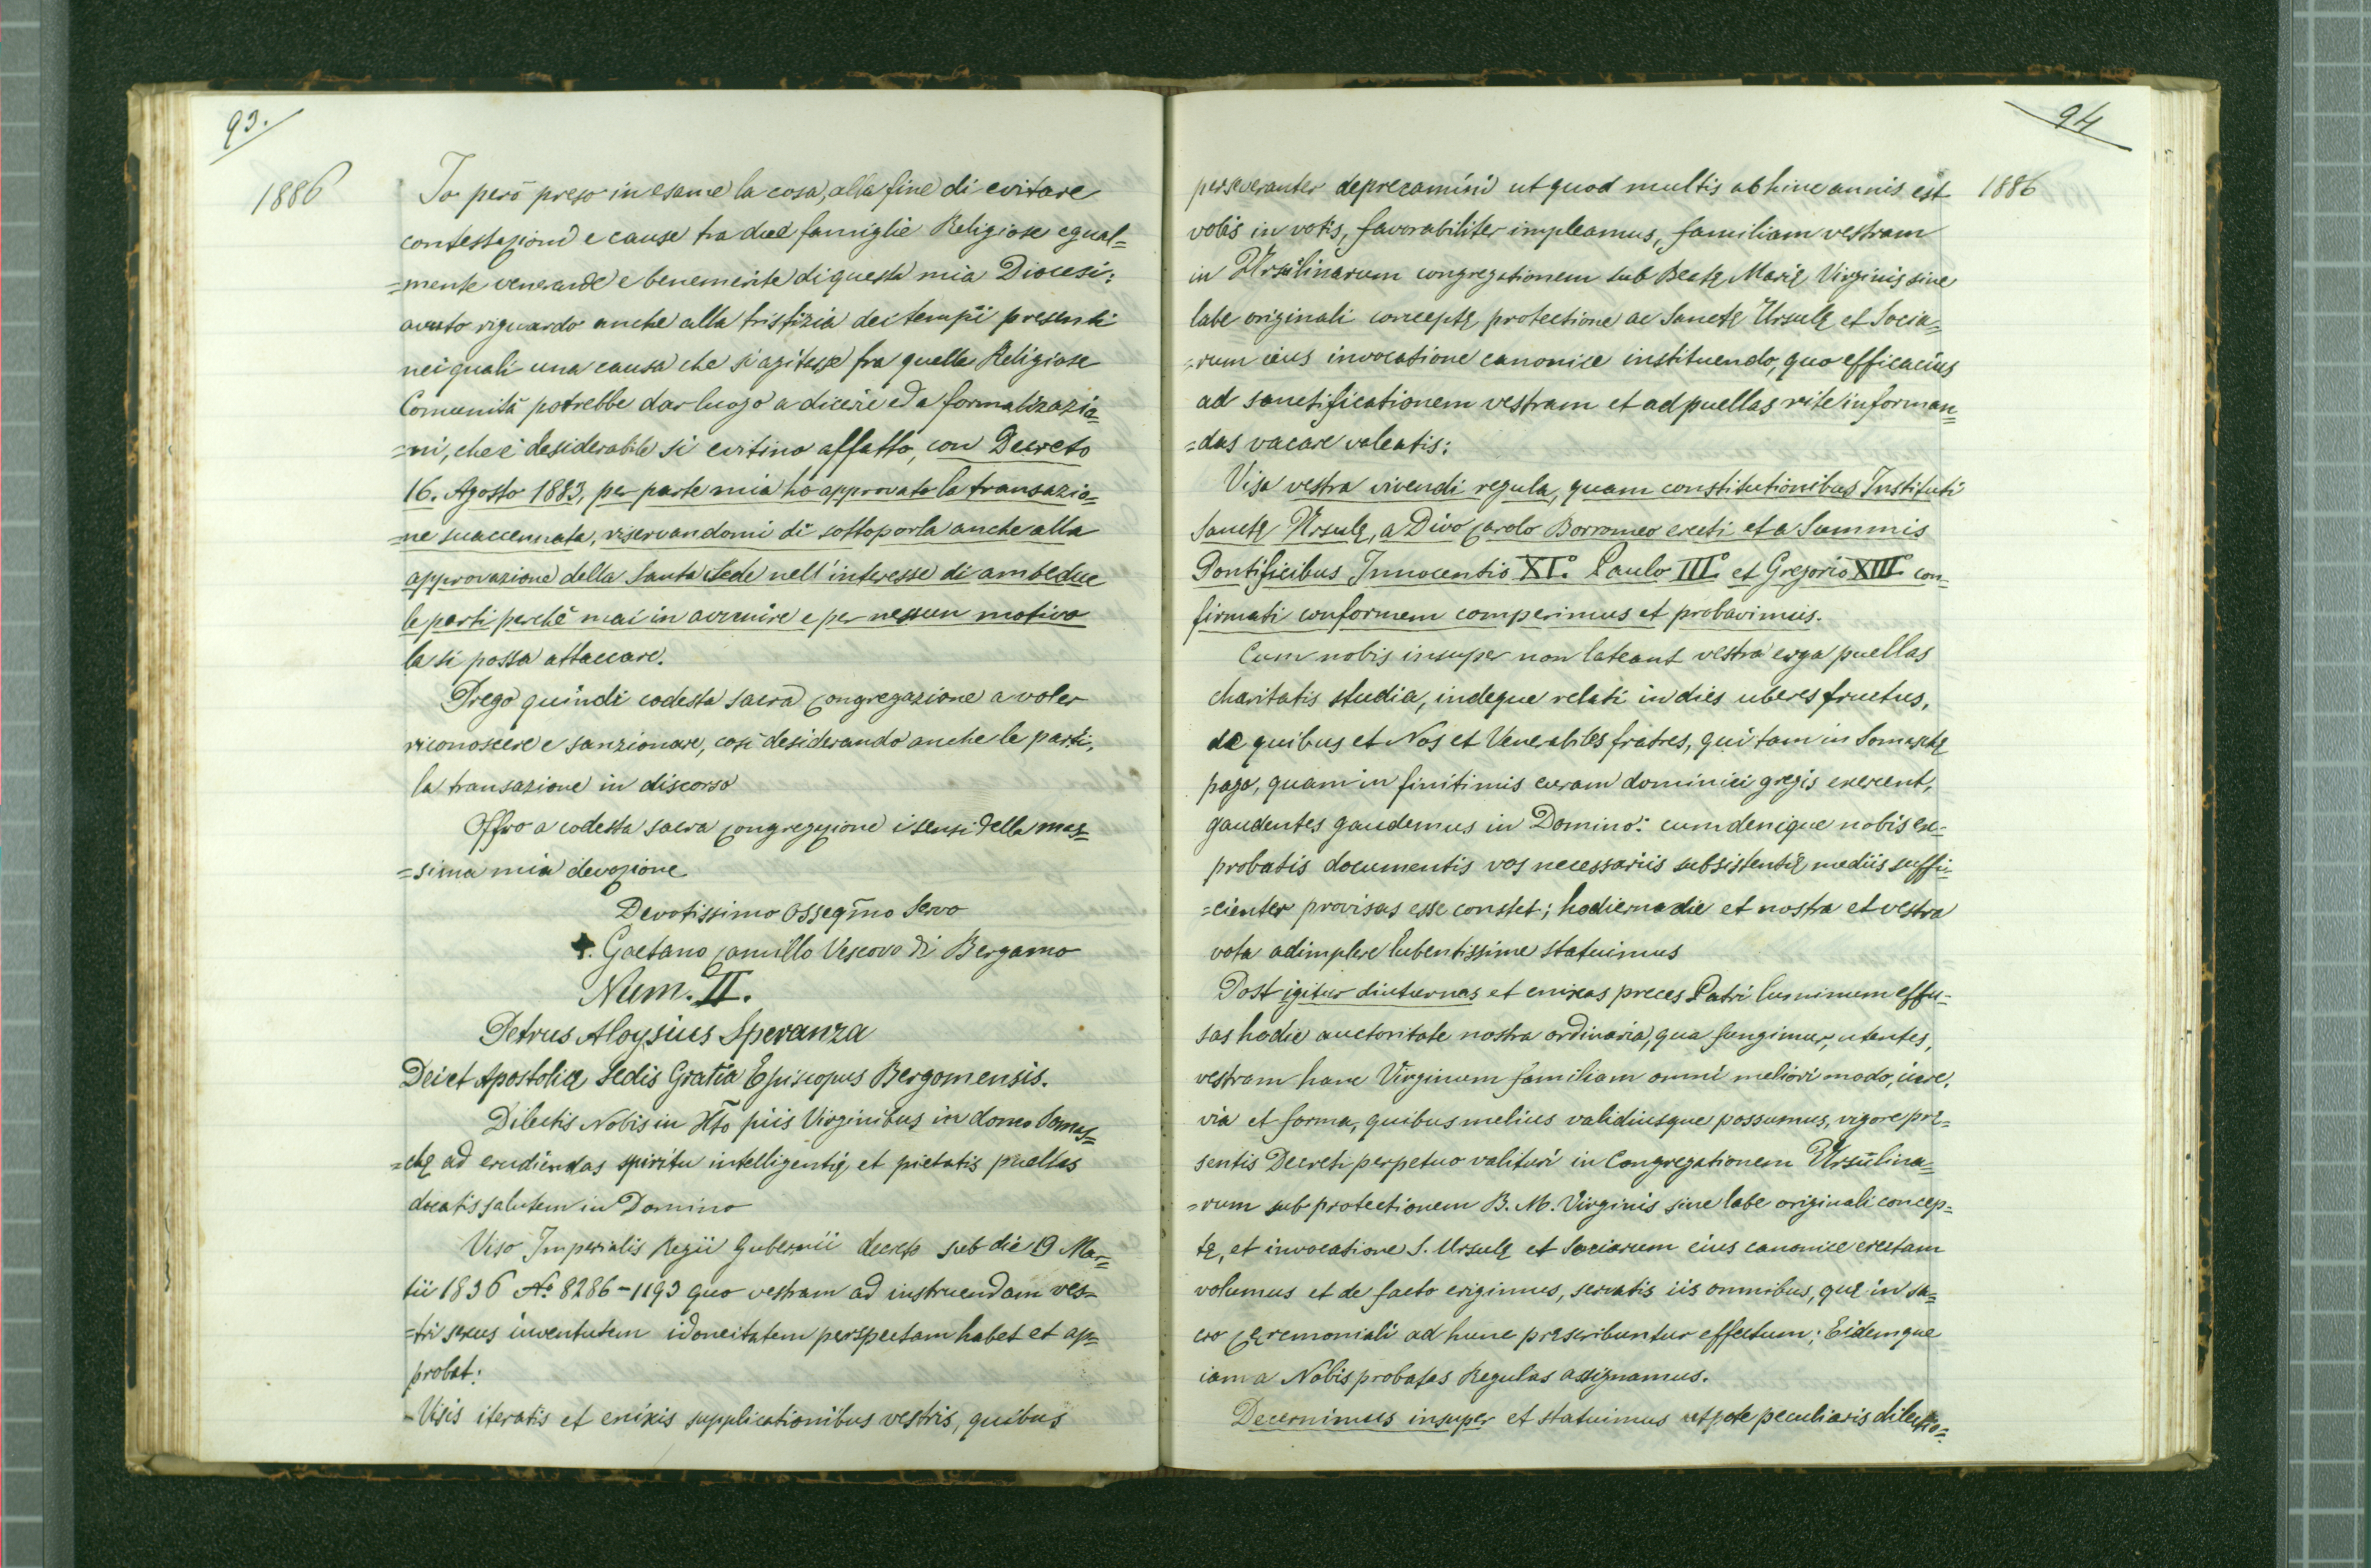 93.
1886
Io però preso in esame la cosa, alla fine di evitare
contestazioni e cause tra due famiglie Religiose egual=
=mente venerande e benemerite di questa mia Diocesi:
avuto riguardo anche alla tristizia dei tempi presenti
nei quali una causa che s'agitasse fra quelle Religiose
Comunità potrebbe dar luogo a dicerie ed a formalizazio=
=ni, che è desiderabile si evitino affatto, con Decreto
16. Agosto 1883, per parte mia ho approvato la transazio=
=ne suaccennata, riservandomi di sottoporla anche alla
approvazione della Santa Sede nell'interesse di ambedue
le parti perchè mai in avvenire e per nessun motivo
la si possa attaccare.
Prego quindi codesta sacra Congregazione a voler
riconoscere e sanzionare, così desiderando anche le parti,
la transazione in discorso
Offro a codesta sacra Congregazione i sensi della mas=
=sima mia devozione
Devotissimo Osseq̃mo Servo
✝. Gaetano Camillo Vescovo di Bergamo
Num. II.
Petrus Aloysius Speranza
Dei et Apostolicę Sedis Gratia Episcopus Bergomensis.
Dilectis Nobis in Xto piis Virginibus in domo Somas=
=chę ad erudiendas spiritu intelligentię, et pietatis puellas
dicatis salutem in Domino
Viso Imperialis Regii Gubernii decreto sub die 19 Mar=
tii 1836 No. 8286-1193 quo vestram ad instruendam ves=
=tri sexus iuventutem idoneitatem perspectam habet et ap=
probat:
- Visis iteratis et enixis supplicationibus vestris, quibus
94
1886
perseveranter deprecamini ut quod multis abhinc annis est
vobis in votis, favorabiliter impleamus, familiam vestram
in Ursulinarum congregationem sub Beatę Marię Virginis sine
labe originali conceptę protectione ac Sanctę Ursulę et Socia=
=rum eius invocatione canonice instituendo, quo efficacius
ad sanctificationem vestram et ad puellas rite informan=
=das vacare valeatis:
Visa vestra vivendi regula, quam constitutionibus Instituti
Sanctę Ursulę, a Divo Carolo Borromeo erecti et a Summis
Pontificibus Innocentio XI.° Paulo III.° et Gregorio XIII.° con=
firmati conformem comperimus et probavimus.
Cum nobis insuper non lateant vestra erga puellas
charitatis studia, indeque relati in dies uberes fructus,
de quibus et Nos et Venerabiles fratres, qui tam in Somaschę
pago, quam in finitimis curam dominici gregis exercent,
gaudentes gaudemus in Domino: cum denique nobis ex=
probatis documentis vos necessariis subsistentię mediis suffi=
=cienter provisas esse constet; hodierna die et nostra et vestra
vota adimplere lubentissime statuimus
Post igitur diuturnas et enixas preces Patri luminum effu=
sas hodie auctoritate nostra ordinaria, qua fungimur, utentes,
vestram hanc Virginum familiam omni meliori modo, iure,
via et forma, quibus melius validiusque possumus, vigore prę=
sentis Decreti perpetuo valituri in Congregationem Ursulina=
=rum sub protectionem B. M. Virginis sine labe originali concep=
tę, et invocatione S. Ursulę et Sociarum eius canonice erectam
volumus et de facto erigimus, servatis iis omnibus, quę in sa=
cro Cęremoniali ad hunc pręscribuntur effectum; Eidemque
iam a Nobis probatas Regulas assignamus.
Decernimus insuper et statuimus utpote peculiaris dilectio=